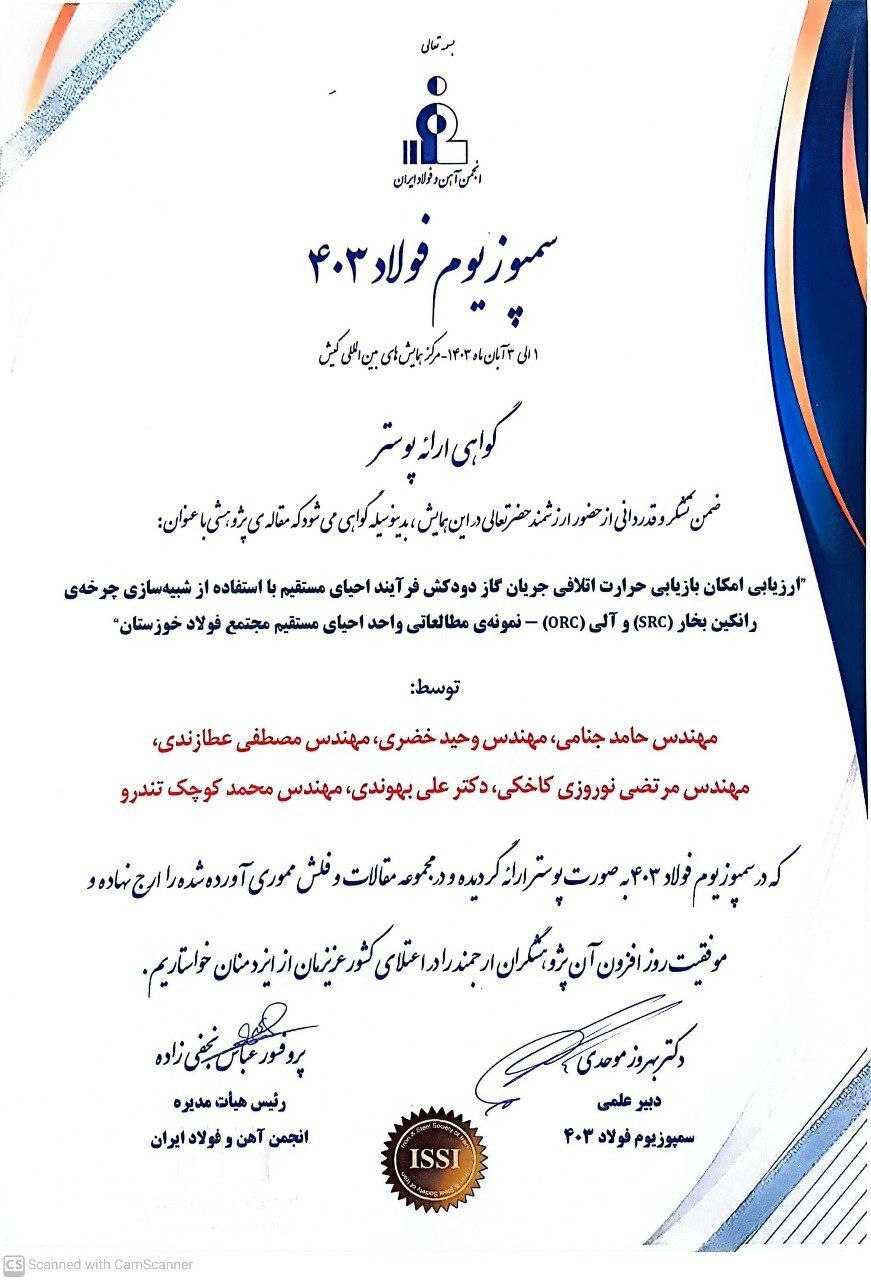 بسمه تعالی
انجمن آهن و فولاد ایران
سمپوزیوم فولاد ۴۰۳
۱ الی ۳ آبان ماه ۱۴۰۳ - مرکز همایش های بین المللی کیش
گواهی ارائه پوستر
ضمن تشکر و قدردانی از حضور ارزشمند حضرتعالی در این همایش، بدینوسیله گواهی می شود که مقاله ی پژوهشی با عنوان:
"ارزیابی امکان بازیابی حرارت اتلافی جریان گاز دودکش فرآیند احیای مستقیم با استفاده از شبیه‌سازی چرخه‌ی
رانکین بخار (SRC) و آلی (ORC) – نمونه‌ی مطالعاتی واحد احیای مستقیم مجتمع فولاد خوزستان"
توسط:
مهندس حامد جنامی، مهندس وحید خضری، مهندس مصطفی عطازندی،
مهندس مرتضی نوروزی کاخکی، دکتر علی بهوندی، مهندس محمد کوچک تندرو
که در سمپوزیوم فولاد ۴۰۳ به صورت پوستر ارائه گردیده و در مجموعه مقالات و فلش مموری آورده شده را ارج نهاده و
موفقیت روز افزون آن پژوهشگران ارجمند را در اعتلای کشور عزیزمان از ایزد منان خواستاریم.
دکتر بهروز موحدی
دبیر علمی
سمپوزیوم فولاد ۴۰۳
پروفسور عباس نجفی زاده
رئیس هیأت مدیره
انجمن آهن و فولاد ایران
Iron & Steel Society of Iran
ISSI
Iron & Steel Society of Iran
CS Scanned with CamScanner